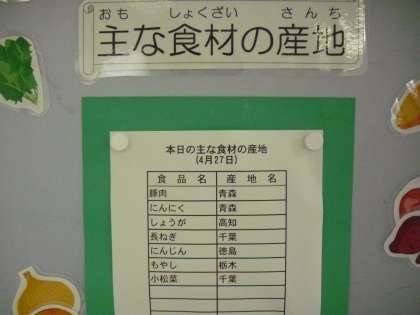 おも しょくざい さんち
主な食材の産地
本日の主な食材の産地
(4月27日)
食品名 産地名
豚肉 青森
にんにく 青森
しょうが 高知
長ねぎ 千葉
にんじん 徳島
もやし 栃木
小松菜 千葉